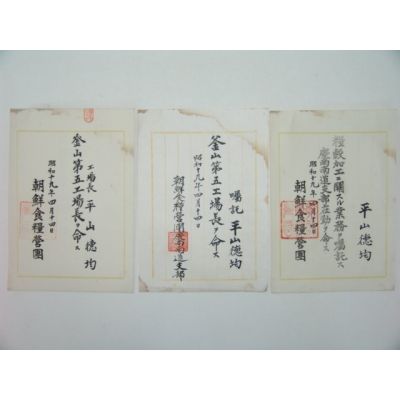 平山德均
糧穀加工ニ關スル業務ヲ囑託ス
慶尚南道支部在勤ヲ命ス
昭和十九年四月十四日
朝鮮食糧營團
囑託 平山德均
釜山第五工場長ヲ命ス
昭和十九年四月十四日
朝鮮食糧營團慶尚南道支部
工場長 平山德均
釜山第五工場長ヲ命ス
昭和十九年四月十四日
朝鮮食糧營團